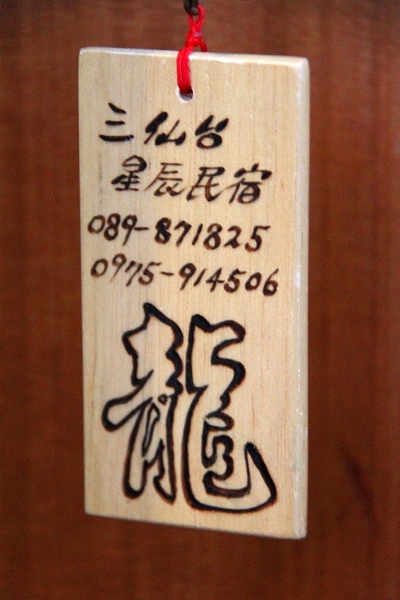 三仙台
星辰民宿
089-871825
0975-914506
龍